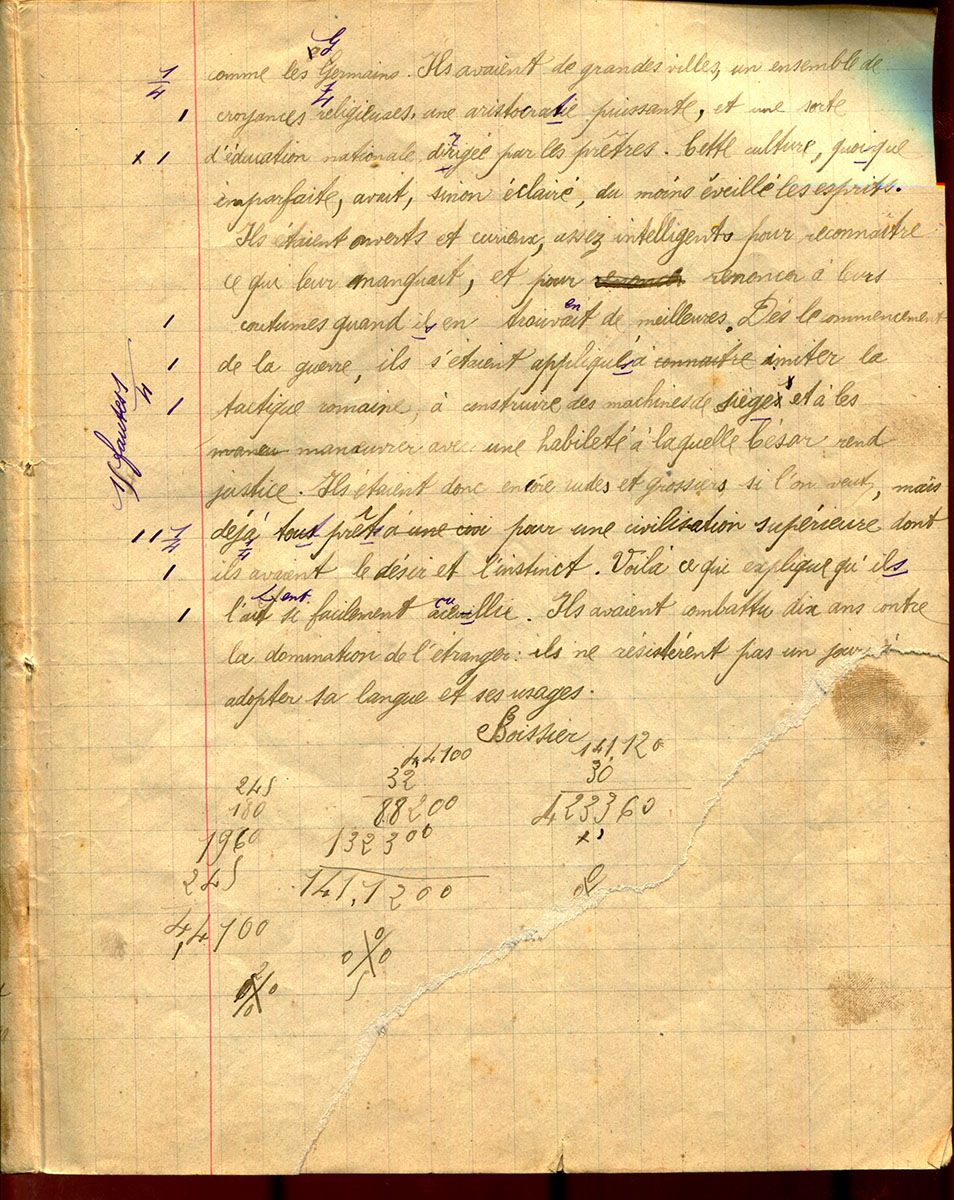 comme les Germains. Ils avaient de grandes villes, un ensemble de
croyances religieuses, une aristocratie puissante, et une sorte
d'éducation nationale dirigée par les prêtres. Cette culture, quoique
imparfaite, avait, sinon éclairé, du moins éveillé les esprits.
Ils étaient ouverts et curieux, assez intelligents pour reconnaître
ce qui leur manquait, et pour renoncer à leurs
coutumes quand ils en trouvait de meilleures. Dès le commencement
de la guerre, ils s'étaient appliqués à connaitre imiter la
tactique romaine, à construire des machines de sièges et à les
maneu manœuvrer avec une habileté à laquelle César rend
justice. Ils étaient donc encore rudes et grossiers si l'on veut, mais
déjà tout prêts à une pour une civilisation supérieure dont
ils avaient le désir et l'instinct. Voilà ce qui explique qu'ils
l'aient si facilement accueillie. Ils avaient combattu dix ans contre
la domination de l'étranger: ils ne résistèrent pas un jour à
adopter sa langue et ses usages.
Boissier
245
180
1960
245
4,4100
44100
32
88200
132300
141,1200
141,120
30
423360